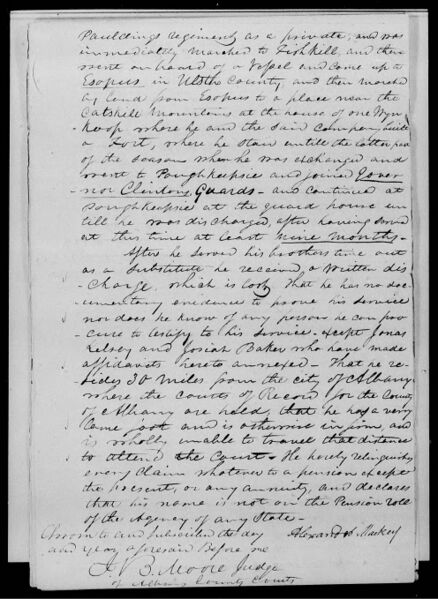 Pauldings Regiment as a private, and was
immediately marched to Fishkill, and then
went on board of a Vessel and came up to
Esopus in Ulster County, and then marched
by land from Esopus to a place near the
Catskill Mountains at the house of one Wyn
Koop where he and the said Company built
a Fort, where he staid untill the latter part
of the season when he was exchanged and
went to Poughkeepsie and joined Gover-
nor Clintons Guards - and continued at
Poughkeepsie at the guard house un
till he was discharged, after having served
at this time at least nine months -
After he served his brothers time out
as a Substitute he received a written dis
charge, which is lost, That he has no doc-
umentary evidence to prove his service
nor does he know of any person he can pro-
cure to testify to his service - except Jonas
Kelsey and Josiah Baker who have made
affidavits hereto annexed - That he re-
sides 30 miles from the city of Albany
where the Courts of Record for the County
of Albany are held, that he has a very
lame foot and is otherwise infirm, and
is wholly unable to travel that distance
to attend the Court - He hereby relinquishes
every claim whatever to a pension except
the present, or any annuity, and declares
that his name is not on the Pension roll
of the Agency of any State -
Sworn to and subscribed the day
and year aforesaid Before me
Alexander Mackey
J B Moore Judge
of Albany County Courts